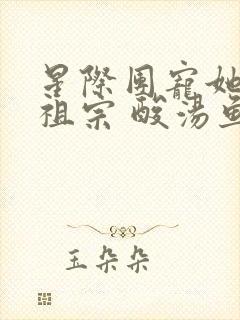 星際團寵她
祖宗 酸湯魚
玉朵朵